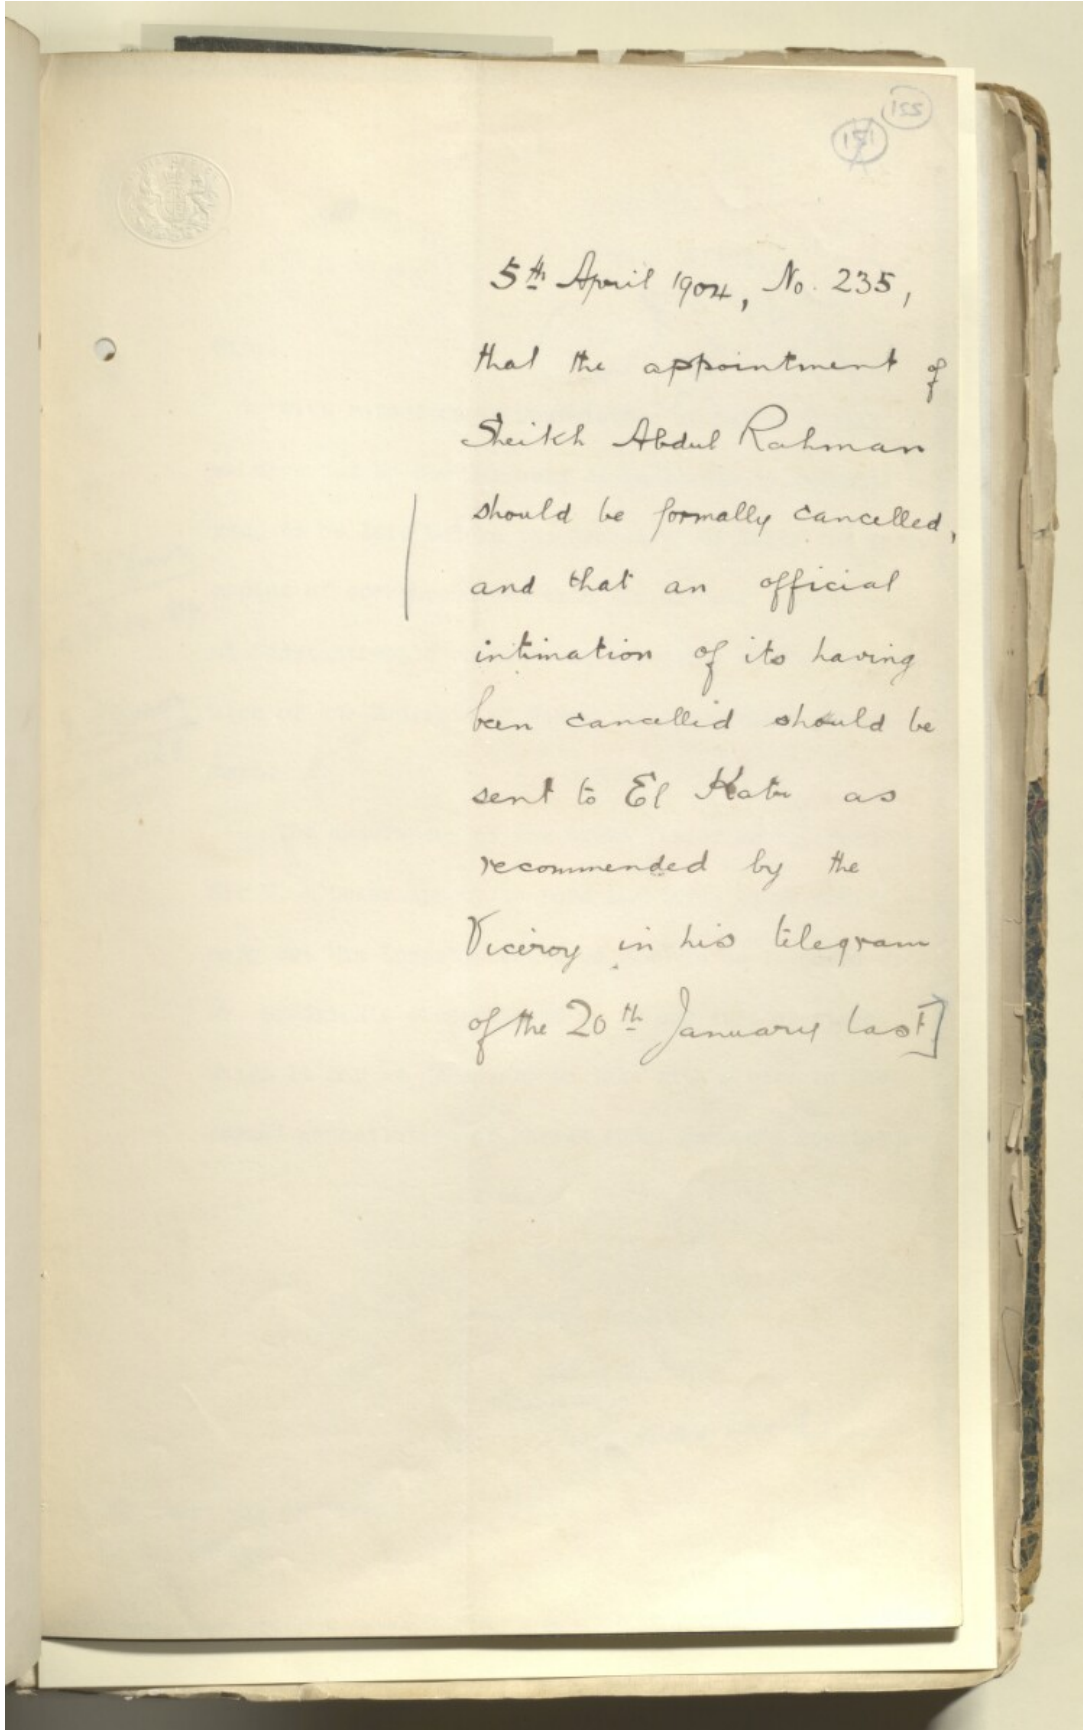 155
151
5th April 1904, No. 235,
that the appointment of
Sheikh Abdul Rahman
should be formally cancelled,
and that an official
intimation of its having
been cancelled should be
sent to El Katr as
recommended by the
Viceroy in his telegram
of the 20th January last]